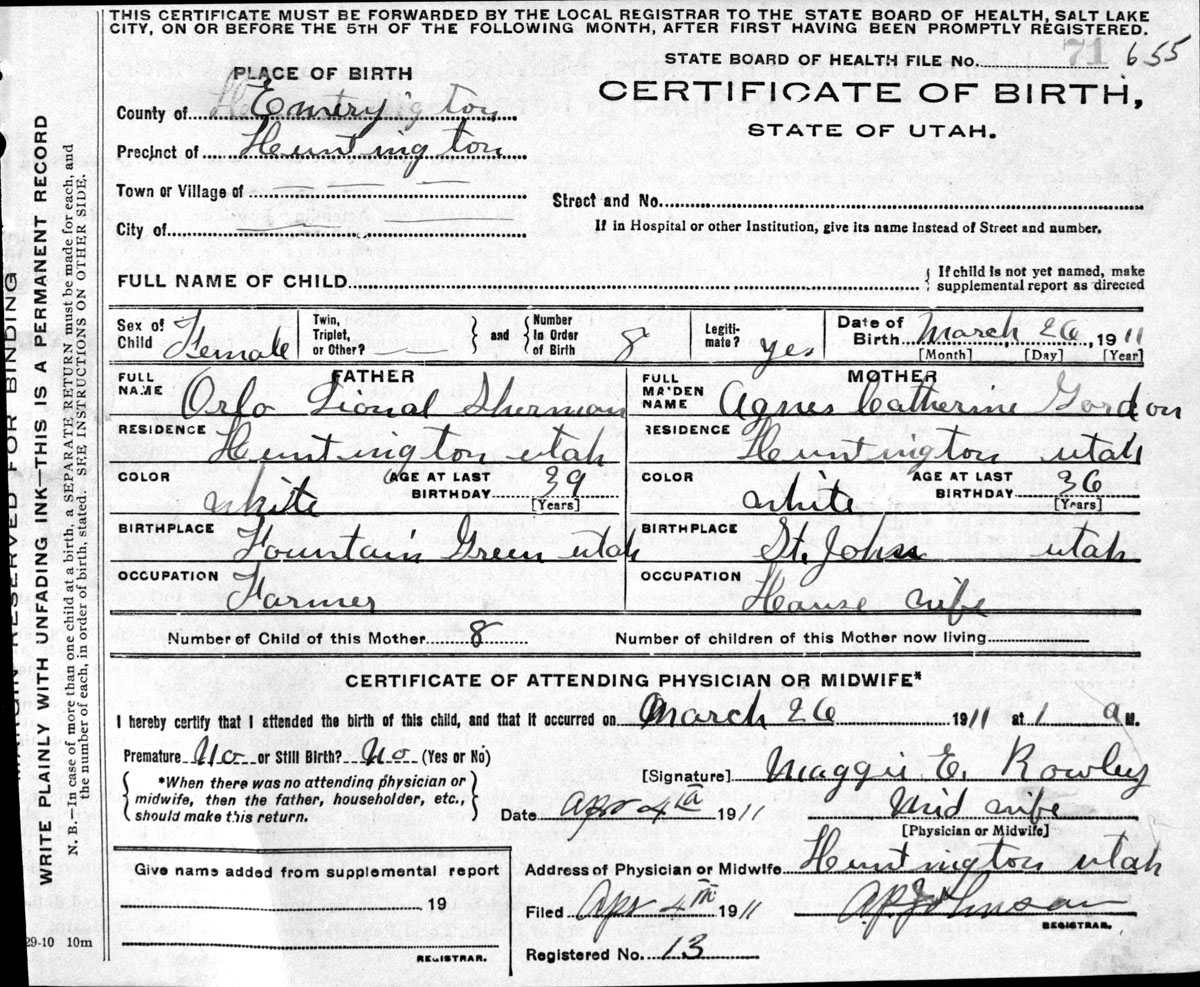 THIS CERTIFICATE MUST BE FORWARDED BY THE LOCAL REGISTRAR TO THE STATE BOARD OF HEALTH, SALT LAKE
CITY, ON OR BEFORE THE 5TH OF THE FOLLOWING MONTH, AFTER FIRST HAVING BEEN PROMPTLY REGISTERED.
STATE BOARD OF HEALTH FILE No. 71 655
PLACE OF BIRTH
CERTIFICATE OF BIRTH,
STATE OF UTAH.
County of Emery
Precinct of Huntington
Town or Village of
Street and No.
City of
If in Hospital or other Institution, give its name instead of Street and number.
FULL NAME OF CHILD
{ If child is not yet named, make
supplemental report as directed
Sex of Child Female
Twin, Triplet, or Other? } and { Number In Order of Birth 8
Legiti-mate? yes
Date of Birth March 26, 1911
[Month] [Day] [Year]
FATHER
FULL NAME Orfo Lional Sherman
RESIDENCE Huntington utah
COLOR white AGE AT LAST BIRTHDAY 39 [Years]
BIRTHPLACE Fountain Green utah
OCCUPATION Farmer
MOTHER
FULL MAIDEN NAME Agnes Catherine Gordon
RESIDENCE Huntington utah
COLOR white AGE AT LAST BIRTHDAY 36 [Years]
BIRTHPLACE St. Johns utah
OCCUPATION House wife
Number of Child of this Mother 8 Number of children of this Mother now living
CERTIFICATE OF ATTENDING PHYSICIAN OR MIDWIFE*
I hereby certify that I attended the birth of this child, and that it occurred on March 26 1911 at 1 a M.
Premature No or Still Birth? No (Yes or No)
{ *When there was no attending physician or
midwife, then the father, householder, etc.,
should make this return. }
[Signature] Maggie E. Rowley
Date Apr 4th 1911 Mid wife
[Physician or Midwife]
Give name added from supplemental report
19
REGISTRAR.
Address of Physician or Midwife Huntington utah
Filed Apr 4th 1911 A.P. Johnson
REGISTRAR.
Registered No. 13
29-10 10m
MARGIN RESERVED FOR BINDING
WRITE PLAINLY WITH UNFADING INK—THIS IS A PERMANENT RECORD
N. B.—In case of more than one child at a birth, a SEPARATE RETURN must be made for each, and
the number of each, in order of birth, stated. SEE INSTRUCTIONS ON OTHER SIDE.